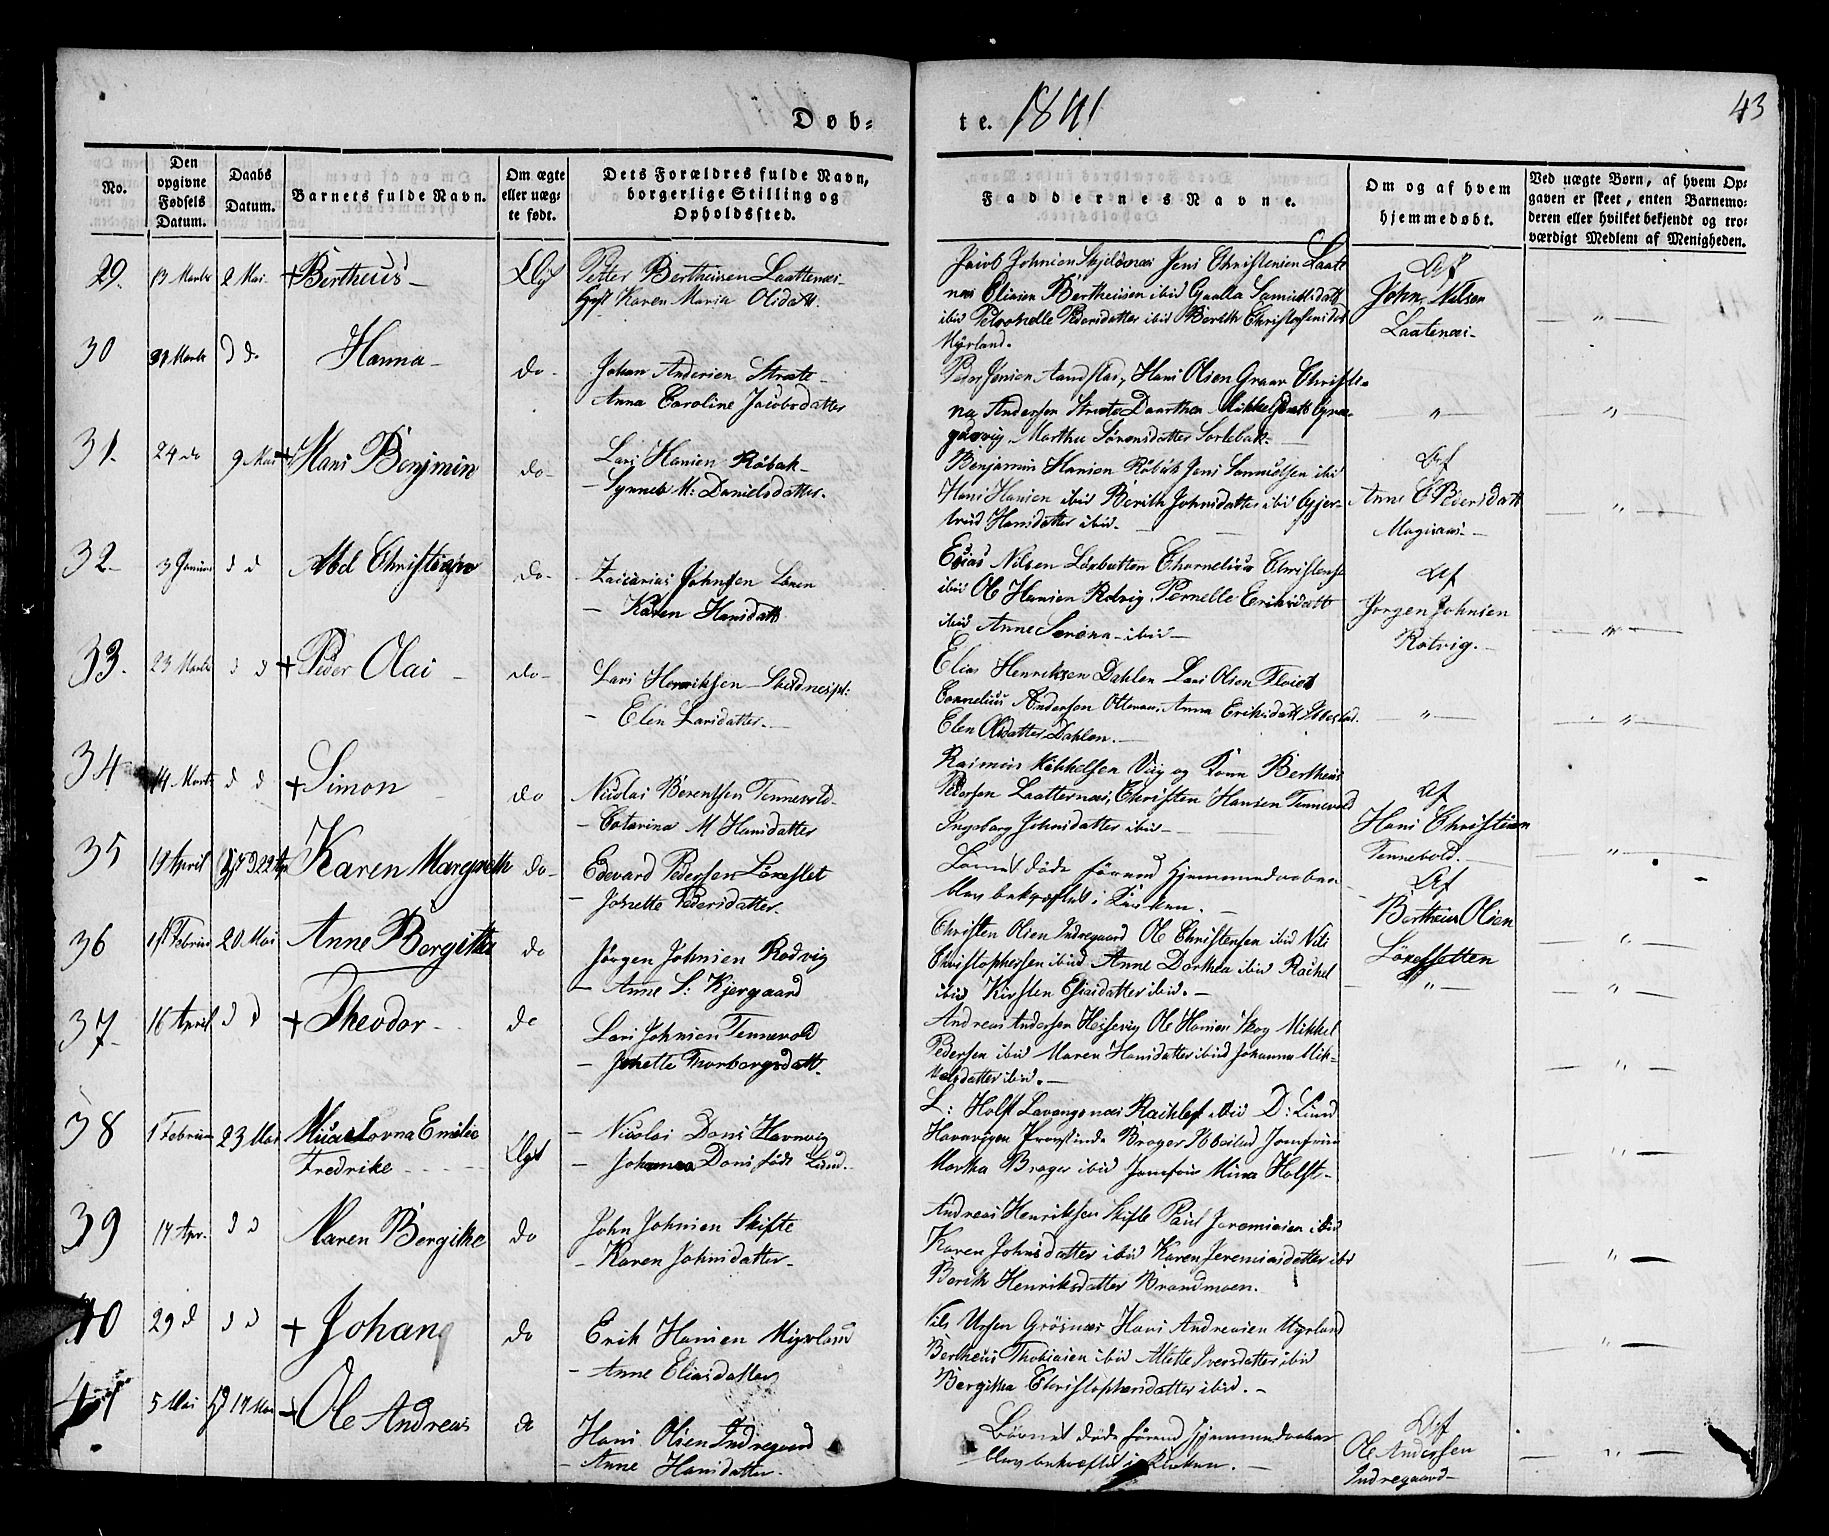 Døb-
te. 1841
43
No.
Den
opgivne
Fødsels
Datum.
Daabs
Datum.
Barnets fulde Navn.
Om ægte
eller uæg-
te født.
Dets Forældres fulde Navn,
borgerlige Stilling og
Opholdssted.
Faddernes Navne.
Om og af hvem
hjemmedøbt.
Ved uægte Børn, af hvem Op-
gaven er skeet, enten Barnemo-
deren eller hvilket bekjendt og tro-
værdigt Medlem af Menigheden.
29. 13 Marts 2 Mai + Bertheus
Petter Bertheusen Laattenæs
Karen Maria Olsdatt.
Jacob Johnsen Skjeldnæs Jens Christensen Laatt
næs Eliasen Bertheusen ibid Samuelsdatt
ibid Petronelle Pedersdatter ibid Berith Christophersdat
Myrland.
Af
John Nilsen
Laatenæs
30 Marts d do Hanna do
Johan Andersen Strate
Anna Caroline Jacobsdatter
Peder Jensen Sandstad, Hans Olsen Graav Christi-
na Andersen Strate Daarthea Mikkelsdatt
Martha Sørensdatter Sorlebak
31. 24 do 9 Mai + Hans Benjmin do
Lars Hansen Røbak
Synneb M: Danielsdatter.
Benjamin Hansen Røbak Jens Samuelsen ibid
Hans Hansen ibid Berith Johnsdatter ibid Gjer-
trud Hansdatter ibid.
Af
Anne C Pedersdatt
32 3 d d Abel Christian do
Zacarias Johnsen
Karen Hansdatt
Esias Nilsen Chornelius Christense
ibid Ole Hansen Rotvig Pernelle Eriksdatt
ibid Anne Serena ibid
Af
Jørgen Johnsen
Rotvig.
33. 23 Marts d d + Peder Olai do
Lars Henriksen Skidnespl:
Elen Larsdatter.
Elias Henriksen Dahlen Lars Olsen
Cornelius Andersen Anna Eriksdatt
Elen Olsdatter Dahlen.
34 14 Marts d d + Simon do
Nicolai Berentsen Tennevold
Catarina M Hansdatter
Rasmus Mikkelsen Viig og Kone Bertheus
Pedersen Laatternæs, Christen Hansen Tennevold
Ingeborg Johnsdatter ibid
Af
Hans Christian
Tennevold.
35 19 April Karen Margreth do
Edevard Pedersen Løxeslet
Johette Pedersdatter.
Barnet døde førend Hjemmedaaben
blev bekræftet i Kirken.
Af
Bertheus Olsen
Løxessletten
36 20 Mai Anne Bergitha do
Jørgen Johnsen Rodvig
Anne S: Kjergaard
Christen Olsen Indregaard Ole Christensen ibid Nils
Christophersen ibid Anne Dorthea ibid Rachel
ibid Kirsten Esiasdatter ibid.
37 16 April d d + Theodor do
Lars Johnsen Tennevold
Johette Thorborgsdatt.
Andreas Andersen Hessevig Ole Hansen Skog Mikkel
Pedersen ibid Maren Hansdatter ibid Johanna Mik-
kelsdatter ibid.
38 1 23 Mai
Fredrike
Nicolai Dons Havnvig
Johanna Dons født Lund.
L: Holst Lavangsnæs ibid D: Lund
Havnvigen Provstinde Brager Ibbestad Jomfru
Martha Brager ibid Jomfru Mina Holst
39 14 Apr. d d Maren Bergithe do
John Johnsen Skifte
Karen Johnsdatter
Andreas Henriksen Skifte Paul Jeremiasen ibid
Karen Johnsdatter ibid Karen Jeremiasdatter ibi
Berith Henriksdatter Brandmoen.
40 29 d d d + Johan do
Erik Hansen Myrland
Anne Eliasdatter
Nils Grøsnæs Hans Andreasen Myrland
Bertheus Thobiasen ibid Mette Iversdatter ibid
Bergitha Christophersdatter ibid.
41 5 Mai Ole Andreas
Hans Olsen Indregaard
Anne Hansdatter
Barnet døde førend Hjemmedaaben
blev bekræftet i Kirken.
Af
Ole Andersen
Indregaard